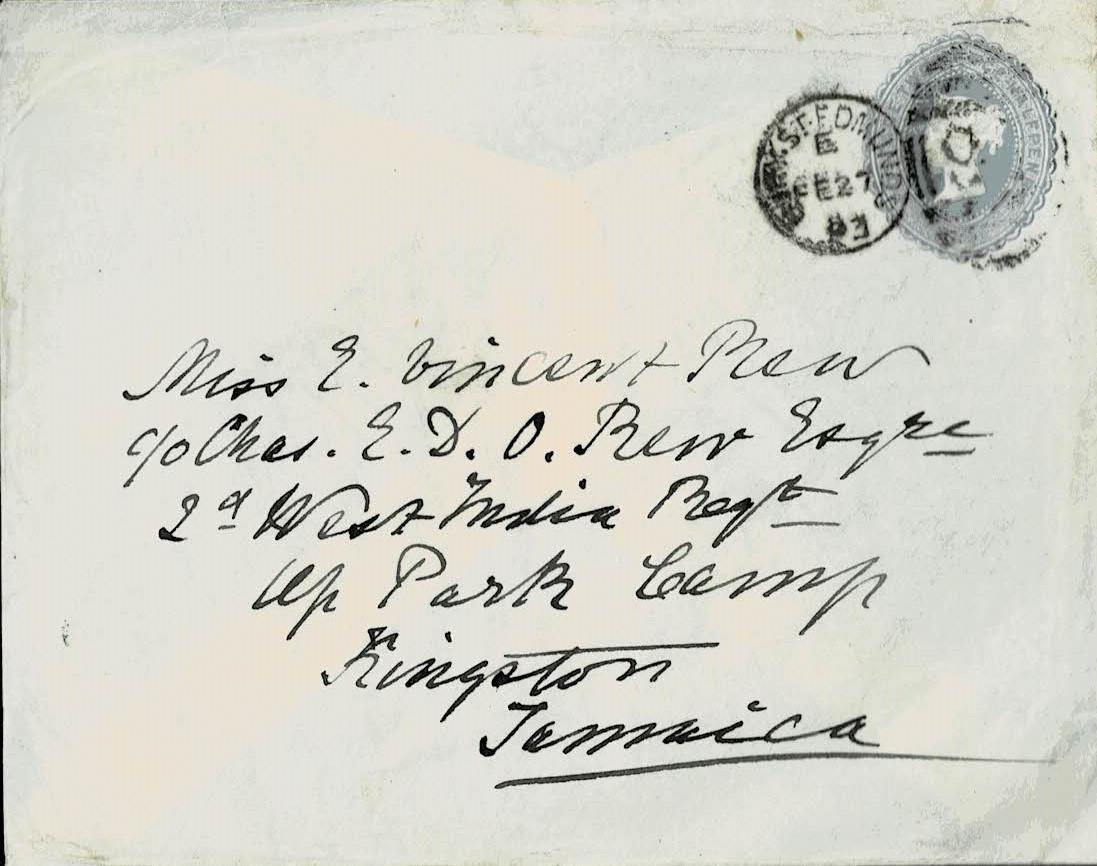 BURY.ST.EDMUNDS
E
FE27
Miss E. Vincent Rew
c/o Chas. E. D. O. Rew Esqre
2d West India Regt
Up Park Camp
Kingston
Jamaica